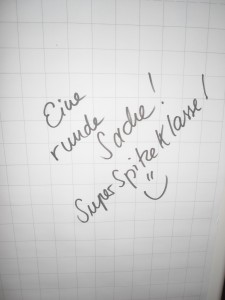 Eine
runde
Sache!
Super Spitze Klasse!